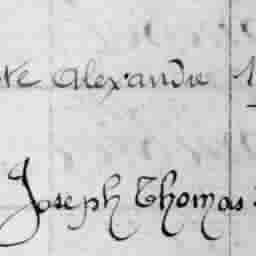 Alexandre
Joseph Thomas